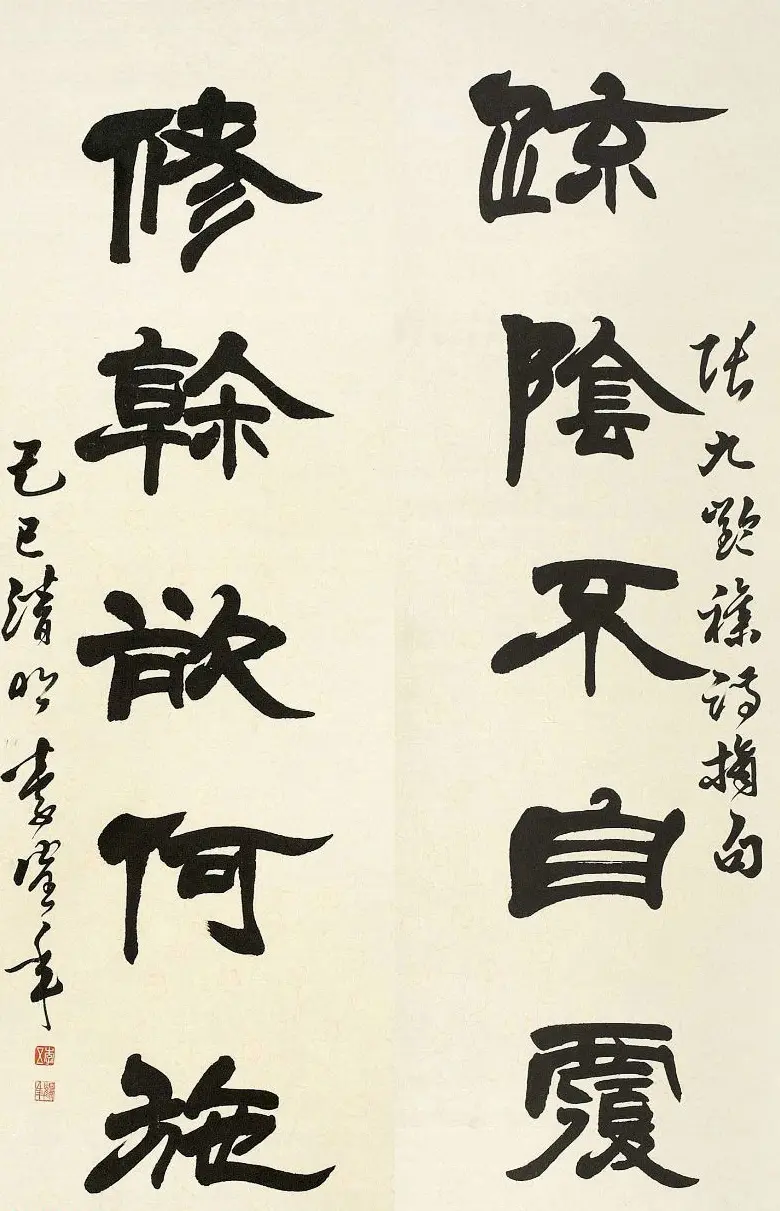 張九齡雜詩摘句
疏陰不自覆
修榦欲何施
己巳清明 年